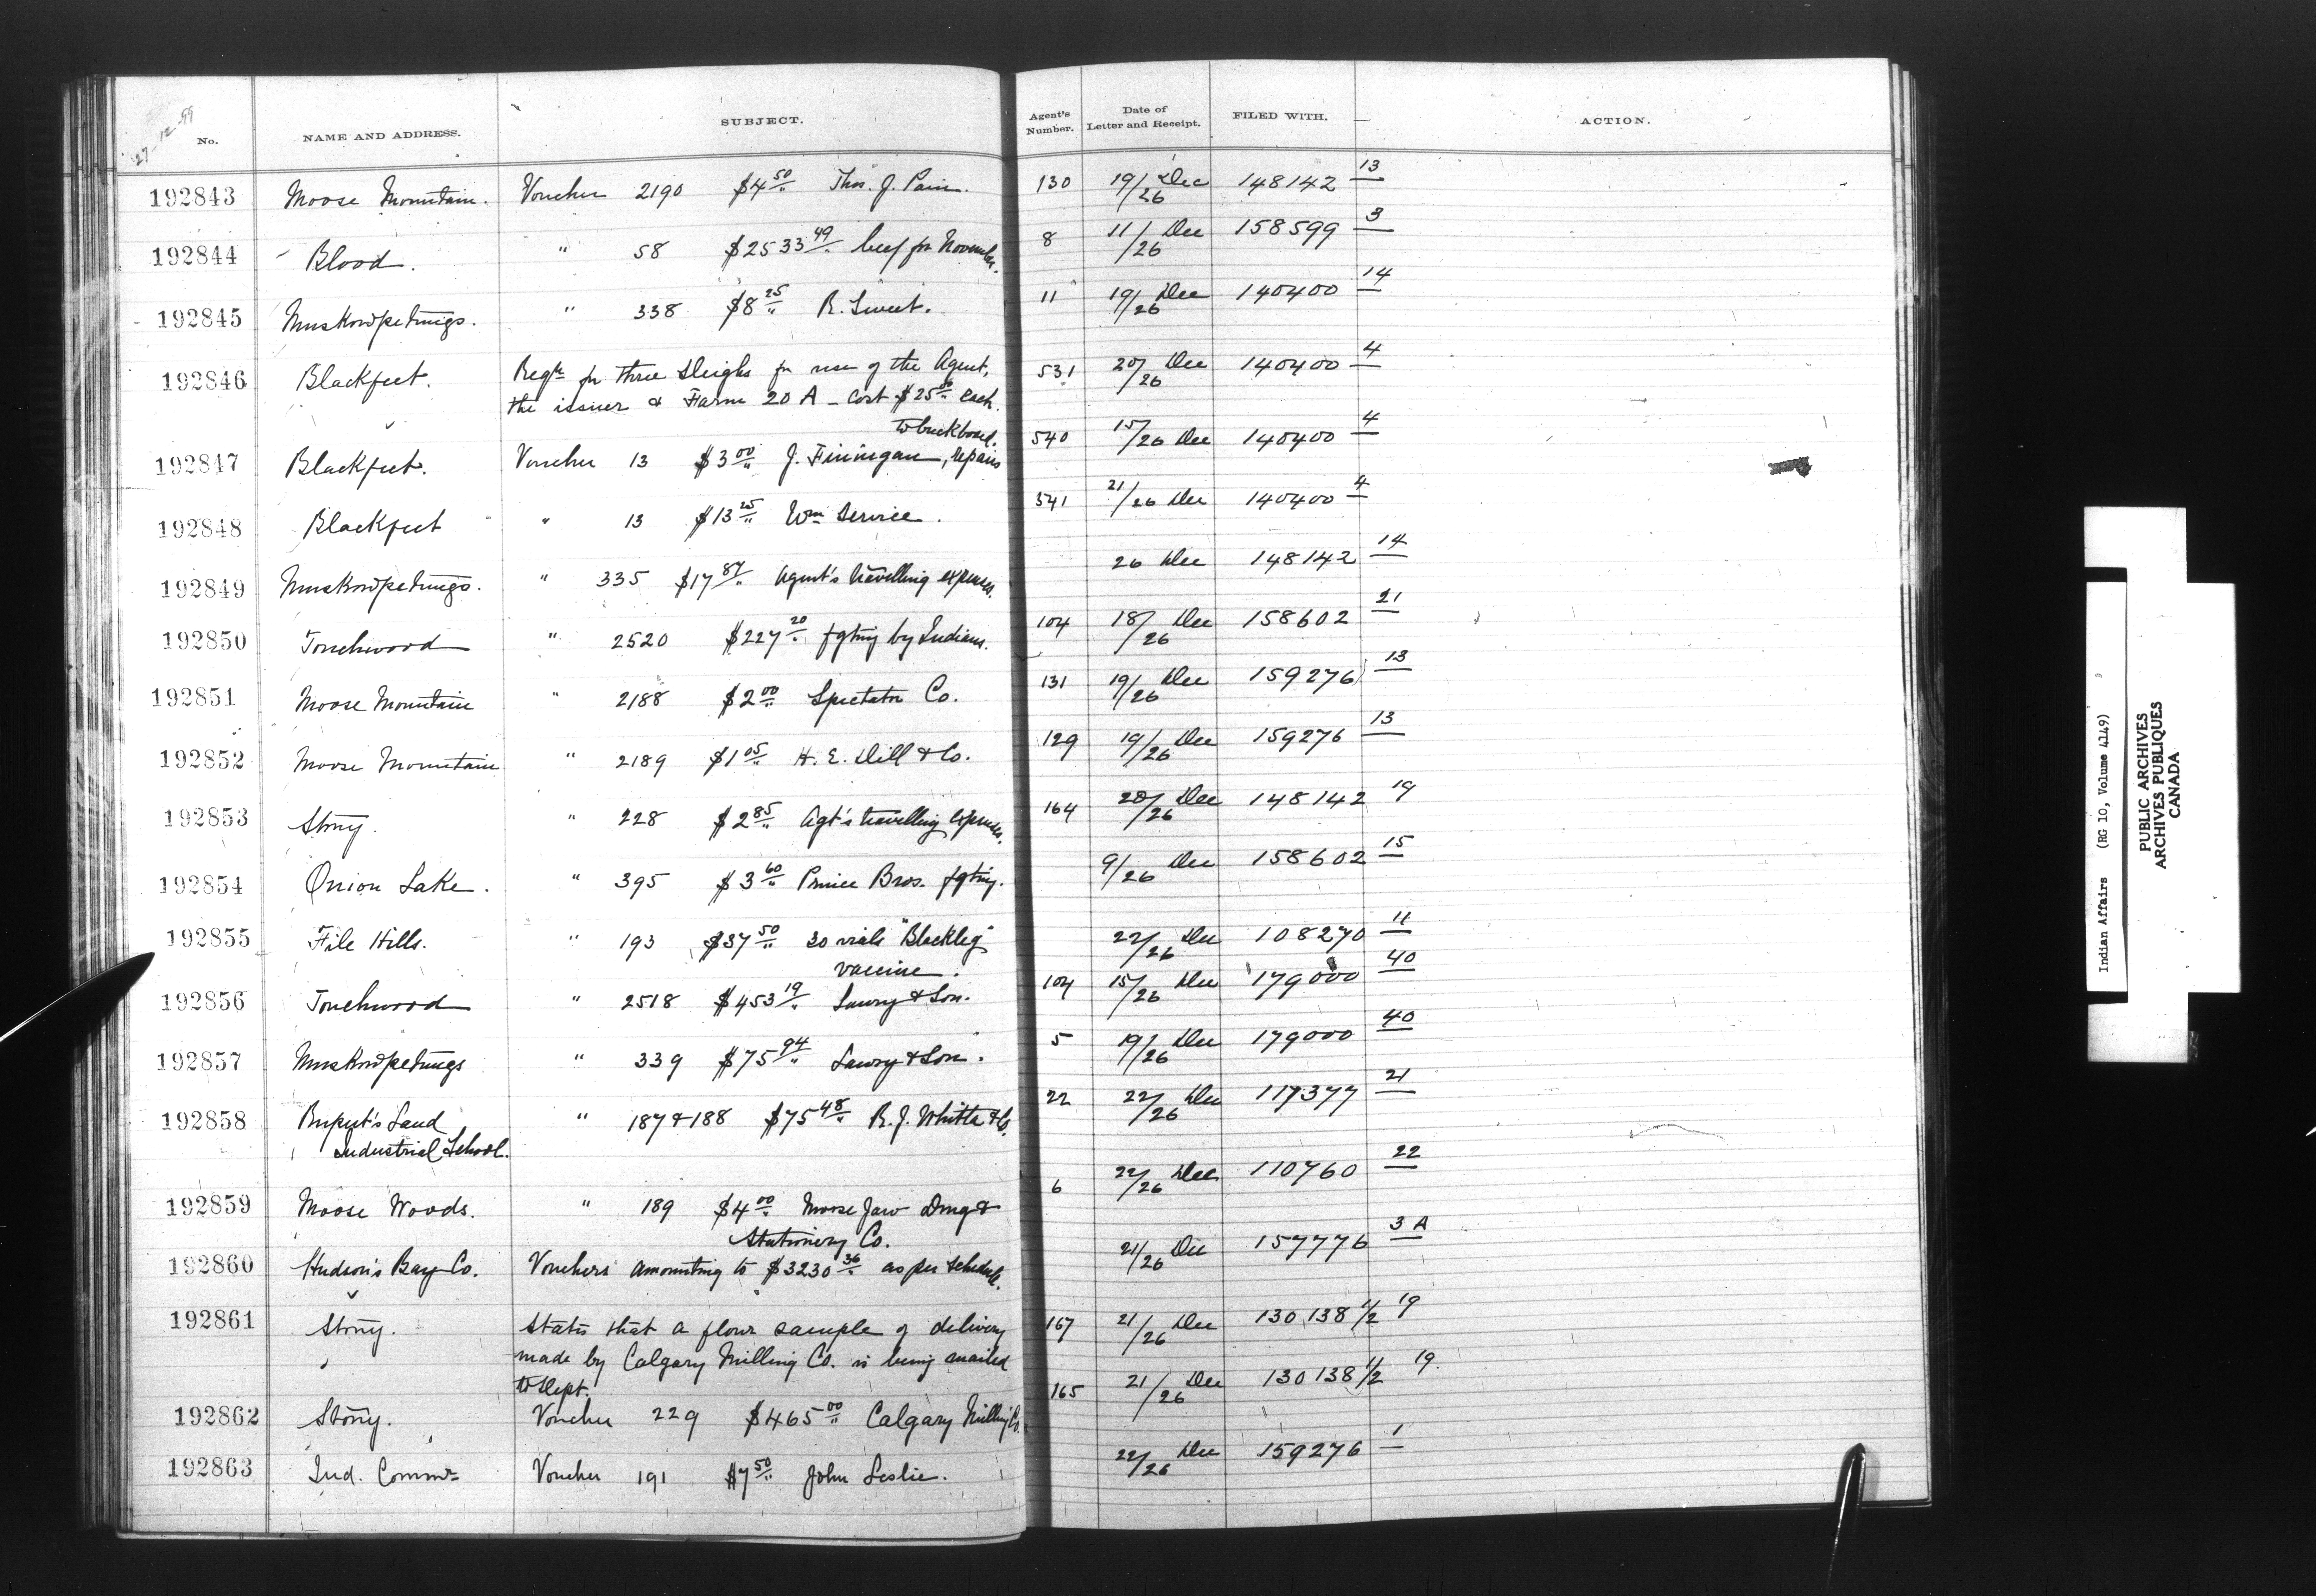 27-12-99
No. NAME AND ADDRESS. SUBJECT. Agent's Number. Date of Letter and Receipt. FILED WITH. ACTION.
192843 Moose Mountain. Voucher 2190 $4 50/" Thos. J. Pain. 130 19/26 Dec 148142 13
192844 Blood. " 58 $2533 49/" beef for November. 8 11/26 Dec 158599 3
192845 Muskowpetungs. " 338 $8 25/" R. Sweet. 11 19/26 Dec 140400 14
192846 Blackfeet. Reqn for three sleighs for use of the Agent, 531 20/26 Dec 140400 4
the issuer & Farm 20 A - Cost $25 00/" each.
to buckboard.
192847 Blackfeet. Voucher 13 $3 00/" J. Finnigan, repairs 540 15/26 Dec 140400 4
192848 Blackfeet " 13 $13 25/" Wm Service. 541 21/26 Dec 140400 4
192849 Muskowpetungs. " 335 $17 87/" Agent's travelling expenses. 26 Dec 148142 14
192850 Touchwood " 2520 $227 20/" fgting by Indians. 104 18/26 Dec 158602 21
192851 Moose Mountain " 2188 $2 00/" Spectator Co. 131 19/26 Dec 159276 13
192852 Moose Mountain " 2189 $1 05/" H. E. Dill & Co. 129 19/26 Dec 159276 13
192853 Stony. " 228 $2 85/" Agt's travelling expenses. 164 20/26 Dec 148142 19
192854 Onion Lake. " 395 $3 60/" Prince Bros. fgting. 9/26 Dec 158602 15
192855 File Hills. " 193 $37 50/" 30 vials "Blackleg" 22/26 Dec 108270 11
vaccine.
192856 Touchwood " 2518 $453 19/" Lawry & Son. 104 15/26 Dec 179000 40
192857 Muskowpetungs " 339 $75 94/" Lawry & Son. 5 19/26 Dec 179000 40
192858 Rupert's Land " 187 & 188 $75 48/" R. J. Whitla & Co. 22 22/26 Dec 117377 21
Industrial School.
192859 Moose Woods. " 189 $4 00/" Moose Jaw Drug & 6 22/26 Dec 110760 22
Stationery Co.
192860 Hudson's Bay Co. Vouchers amounting to $3230 36/" as per schedule. 21/26 Dec 157776 3 A
192861 Stony. States that a flour sample of delivery 167 21/26 Dec 130138 1/2 19
made by Calgary Milling Co. is being mailed
to Dept.
192862 Stony. Voucher 229 $465 00/" Calgary Milling Co. 165 21/26 Dec 130138 1/2 19.
192863 Ind. Commr Voucher 191 $7 50/" John Leslie. 22/26 Dec 159276 1
Indian Affairs (RG 10, Volume 4149)
PUBLIC ARCHIVES
ARCHIVES PUBLIQUES
CANADA